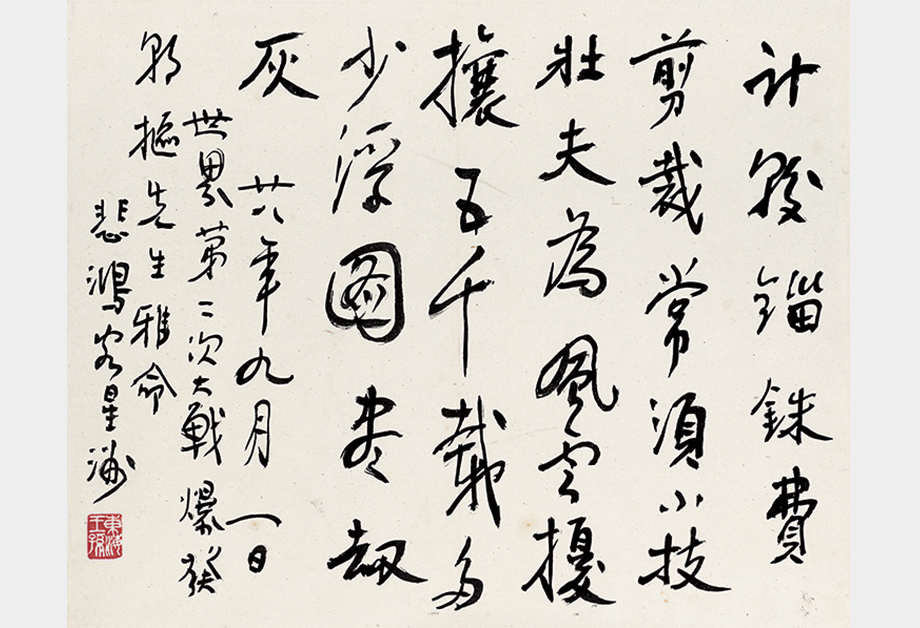 計較錙銖費
剪裁常須小技
壯夫為風雲擾
攘五千載多
少浮圖盡劫
灰 廿八年九月一日
世界第二次大戰爆發
樞先生雅命
悲鴻客星洲
東海王孫